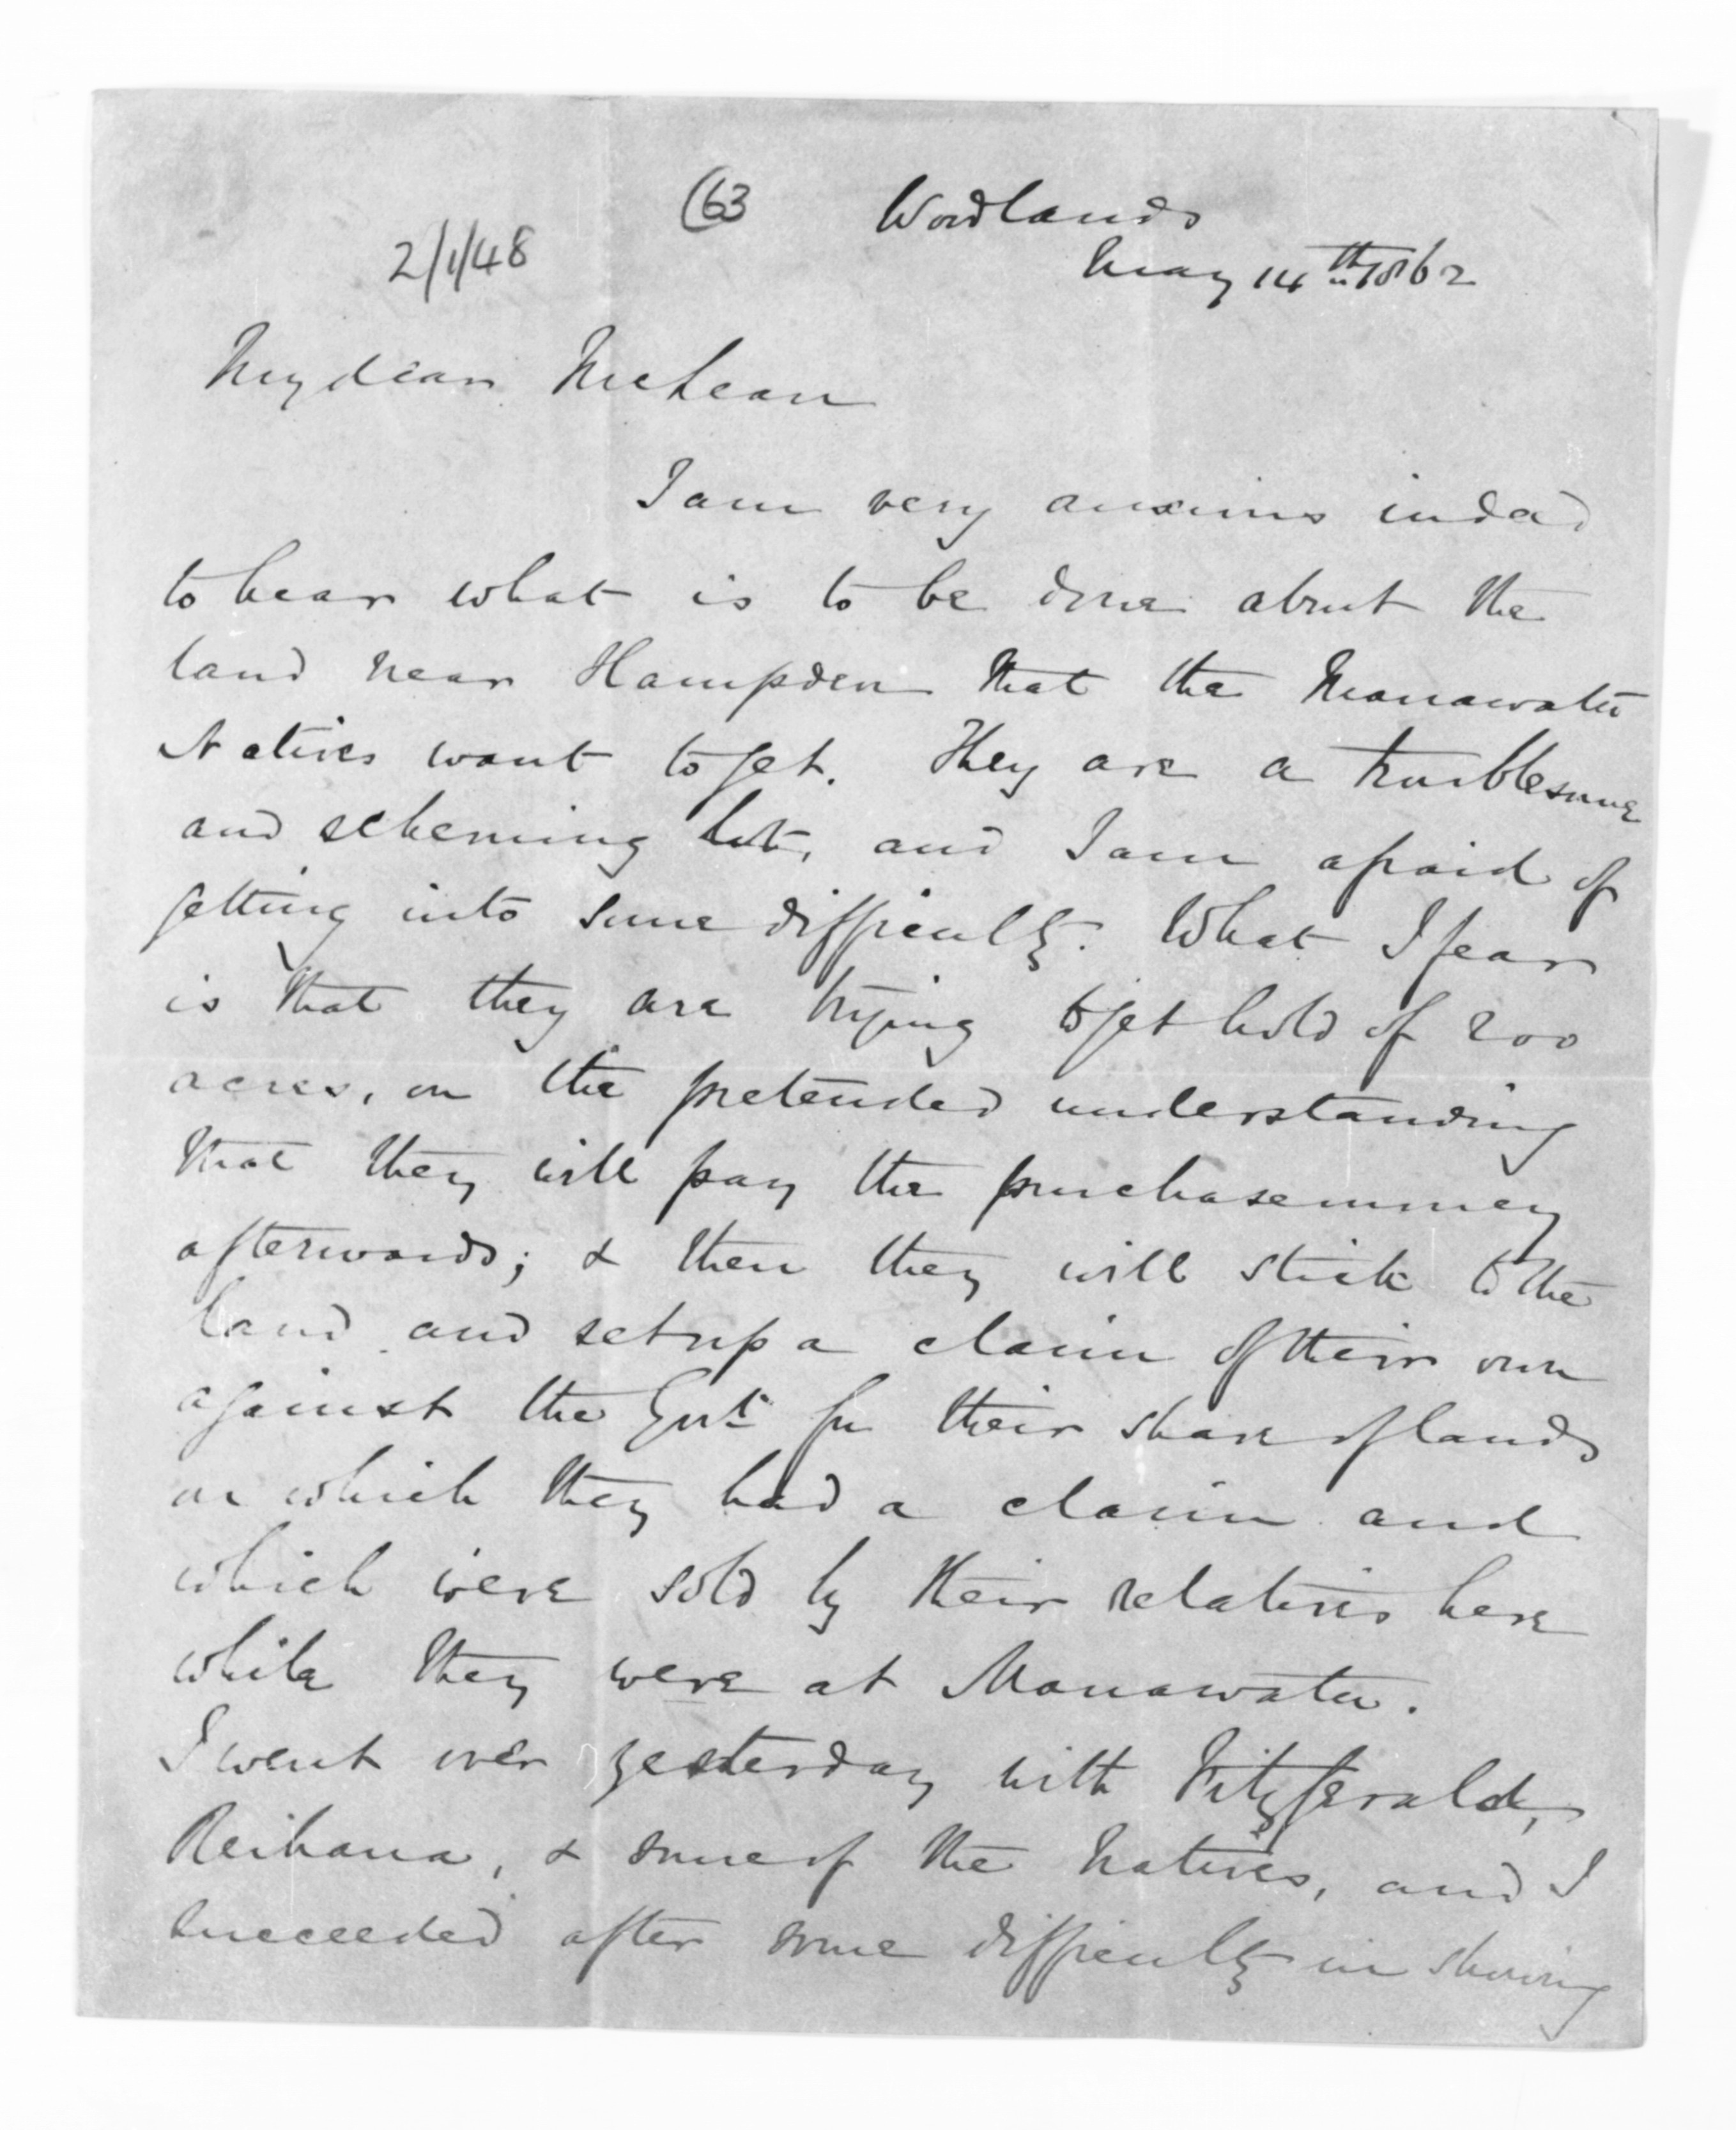 (63
Woodlands
2/1/48
May 14th 1862
My dear McLean
I am very anxious indeed
to hear what is to be done about the
land near Hampden that the Manawatu
Natives want to get. They are a troublesome
and scheming lot, and I am afraid of
getting into some difficulty. What I fear
is that they are trying to get hold of 200
acres, on the pretended understanding
that they will pay the purchasemoney
afterwards; & then they will stick to the
land and set up a claim of their own
against the Govt. for their share of lands
on which they had a claim and
which were sold by their relatives here
while they were at Manawatu.
I went over yesterday with Fitzgerald,
Reihana, & some of the Natives, and I
succeeded after some difficulty in showing